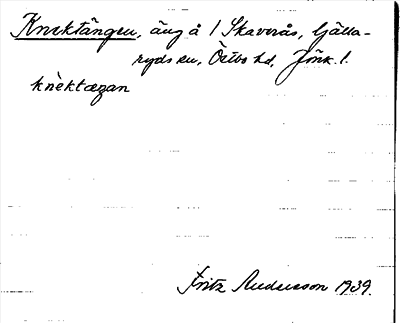 Knektängen, äng å 1 Skaverås, Gjälla-
ryds sn, Östbo hd, Jönk. l.
knèktæŋan
Fritz Andersson 1939.